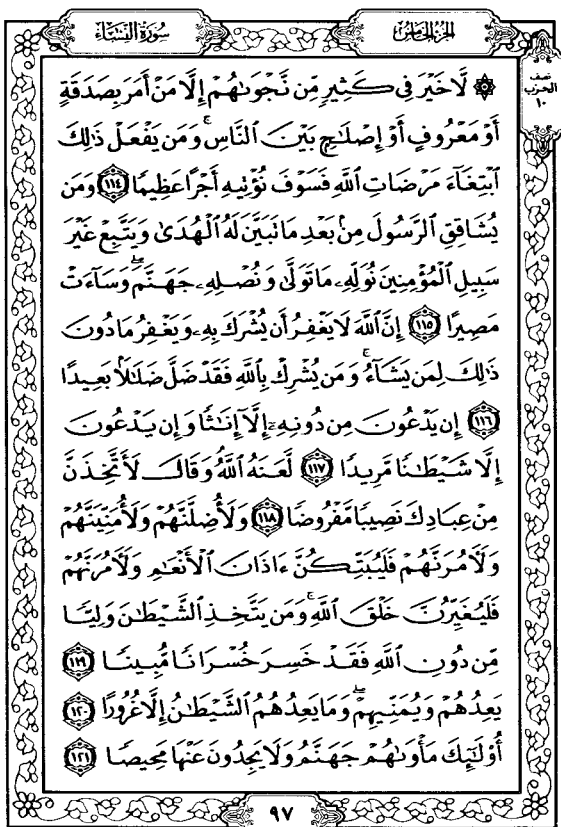 سُورَةُ النِّسَاءِ
الجُزْءُ الخَامِسُ
نصف
الحزب
١٠
۞ لَّا خَيْرَ فِى كَثِيرٍ مِّن نَّجْوَىٰهُمْ إِلَّا مَنْ أَمَرَ بِصَدَقَةٍ
أَوْ مَعْرُوفٍ أَوْ إِصْلَٰحٍۭ بَيْنَ النَّاسِ ۚ وَمَن يَفْعَلْ ذَٰلِكَ
ٱبْتِغَآءَ مَرْضَاتِ ٱللَّهِ فَسَوْفَ نُؤْتِيهِ أَجْرًا عَظِيمًا ١١٤ وَمَن
يُشَاقِقِ ٱلرَّسُولَ مِنۢ بَعْدِ مَا تَبَيَّنَ لَهُ ٱلْهُدَىٰ وَيَتَّبِعْ غَيْرَ
سَبِيلِ ٱلْمُؤْمِنِينَ نُوَلِّهِۦ مَا تَوَلَّىٰ وَنُصْلِهِۦ جَهَنَّمَ ۖ وَسَآءَتْ
مَصِيرًا ١١٥ إِنَّ ٱللَّهَ لَا يَغْفِرُ أَن يُشْرَكَ بِهِۦ وَيَغْفِرُ مَا دُونَ
ذَٰلِكَ لِمَن يَشَآءُ ۚ وَمَن يُشْرِكْ بِٱللَّهِ فَقَدْ ضَلَّ ضَلَٰلًۢا بَعِيدًا
١١٦ إِن يَدْعُونَ مِن دُونِهِۦٓ إِلَّآ إِنَٰثًا وَإِن يَدْعُونَ
إِلَّا شَيْطَٰنًا مَّرِيدًا ١١٧ لَّعَنَهُ ٱللَّهُ ۘ وَقَالَ لَأَتَّخِذَنَّ
مِنْ عِبَادِكَ نَصِيبًا مَّفْرُوضًا ١١٨ وَلَأُضِلَّنَّهُمْ وَلَأُمَنِّيَنَّهُمْ
وَلَءَامُرَنَّهُمْ فَلَيُبَتِّكُنَّ ءَاذَانَ ٱلْأَنْعَٰمِ وَلَءَامُرَنَّهُمْ
فَلَيُغَيِّرُنَّ خَلْقَ ٱللَّهِ ۚ وَمَن يَتَّخِذِ ٱلشَّيْطَٰنَ وَلِيًّا
مِّن دُونِ ٱللَّهِ فَقَدْ خَسِرَ خُسْرَانًا مُّبِينًا ١١٩
يَعِدُهُمْ وَيُمَنِّيهِمْ ۖ وَمَا يَعِدُهُمُ ٱلشَّيْطَٰنُ إِلَّا غُرُورًا ١٢٠
أُو۟لَٰٓئِكَ مَأْوَىٰهُمْ جَهَنَّمُ وَلَا يَجِدُونَ عَنْهَا مَحِيصًا ١٢١
٩٧